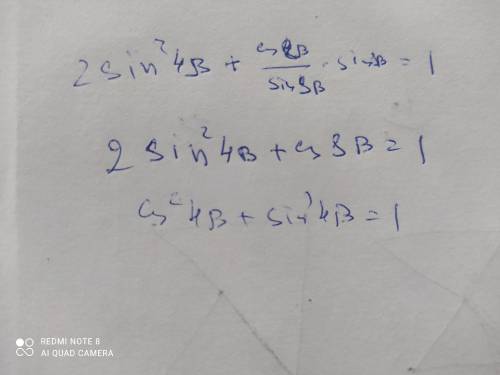 2 sin²4β + cs8β/sin8β · sin8β = 1
2 sin²4β + cs 8β = 1
cs²4β + sin²4β = 1
REDMI NOTE 8
AI QUAD CAMERA